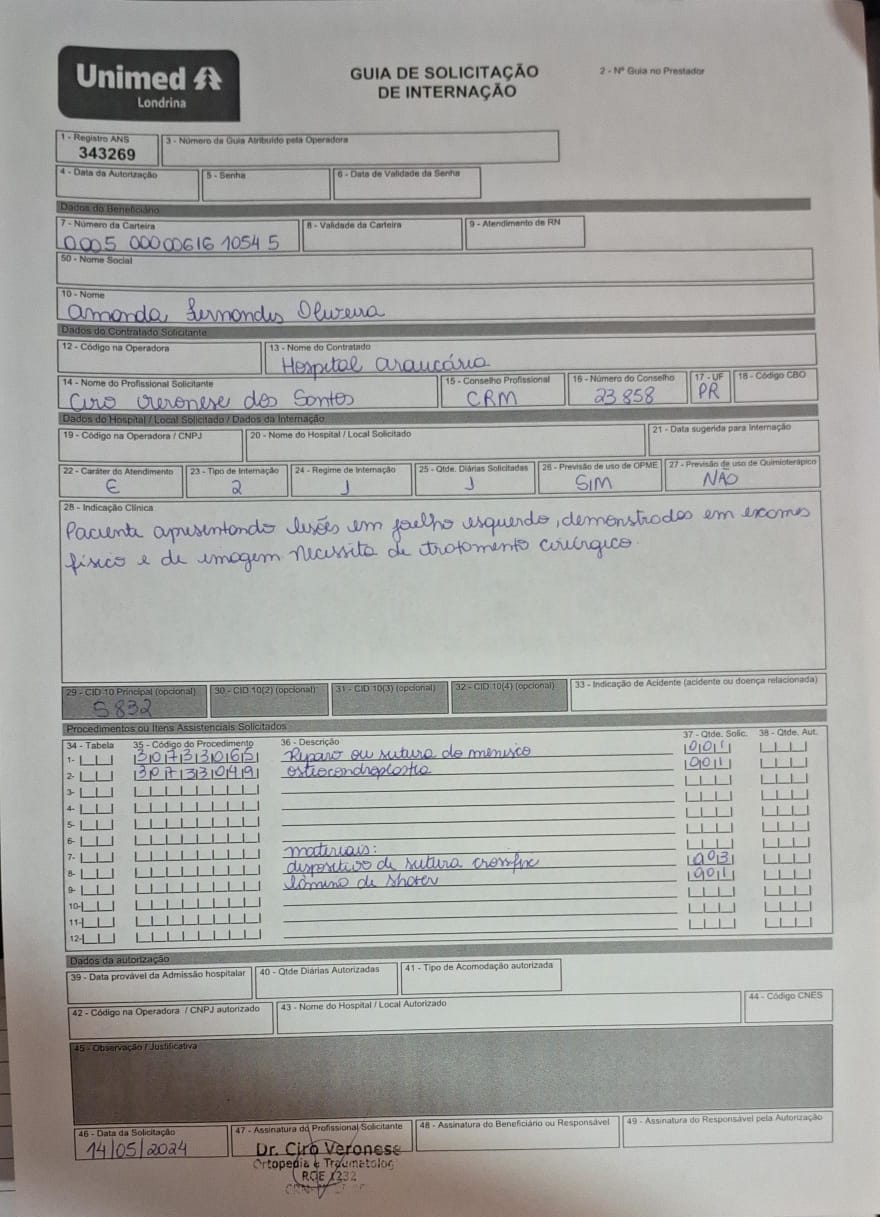 Unimed
Londrina
GUIA DE SOLICITAÇÃO
DE INTERNAÇÃO
2 - Nº Guia no Prestador
1 - Registro ANS
343269
3 - Número da Guia Atribuído pela Operadora
4 - Data da Autorização
5 - Senha
6 - Data de Validade da Senha
Dados do Beneficiário
7 - Número da Carteira
0005 00000616 10545
8 - Validade da Carteira
9 - Atendimento de RN
50 - Nome Social
10 - Nome
Amanda Fernandes Oliveira
Dados do Contratado Solicitante
12 - Código na Operadora
13 - Nome do Contratado
Hospital Araucária
14 - Nome do Profissional Solicitante
Ciro Veronese dos Santos
15 - Conselho Profissional
CRM
16 - Número do Conselho
23858
17 - UF
PR
18 - Código CBO
Dados do Hospital / Local Solicitado / Dados da Internação
19 - Código na Operadora / CNPJ
20 - Nome do Hospital / Local Solicitado
21 - Data sugerida para Internação
22 - Caráter do Atendimento
E
23 - Tipo de Internação
2
24 - Regime de Internação
1
25 - Qtde. Diárias Solicitadas
1
26 - Previsão de uso de OPME
SIM
27 - Previsão de uso de Quimioterápico
NÃO
28 - Indicação Clínica
Paciente apresentando lesões em joelho esquerdo, demonstrados em exames
físico e de imagem necessita de tratamento cirúrgico.
29 - CID 10 Principal (opcional)
S832
30 - CID 10(2) (opcional)
31 - CID 10(3) (opcional)
32 - CID 10(4) (opcional)
33 - Indicação de Acidente (acidente ou doença relacionada)
Procedimentos ou Itens Assistenciais Solicitados
34 - Tabela 35 - Código do Procedimento 36 - Descrição 37 - Qtde. Solic. 38 - Qtde. Aut.
1- 30733065 Reparo ou sutura do menisco 001
2- 30733049 osteocondroplastia 001
3-
4-
5-
6-
7- materiais:
8- dispositivo de sutura crossfix 003
9- lâmina de shaver 001
10-
11-
12-
Dados da autorização
39 - Data provável da Admissão hospitalar
40 - Qtde Diárias Autorizadas
41 - Tipo de Acomodação autorizada
42 - Código na Operadora / CNPJ autorizado
43 - Nome do Hospital / Local Autorizado
44 - Código CNES
45 - Observação / Justificativa
46 - Data da Solicitação
14/05/2024
47 - Assinatura do Profissional Solicitante
Dr. Ciro Veronese
Ortopedia e Traumatolog
RQE 1232
48 - Assinatura do Beneficiário ou Responsável
49 - Assinatura do Responsável pela Autorização